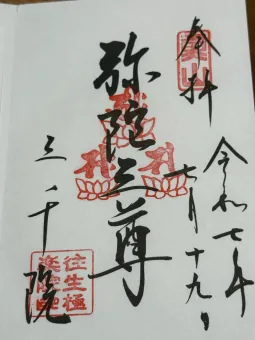 奉拝
令和七年
七月十九日
弥陀三尊
三千院
往生極
楽院